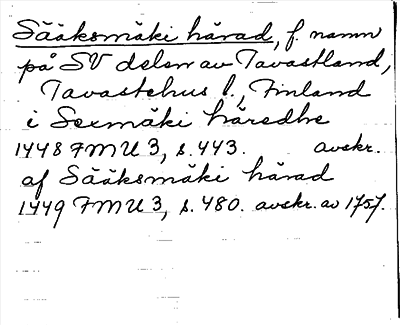 Sääksmäki härad, f. namn
på SV delen av Tavastland,
Tavastehus l., Finland
i Sexmäki häredhe
1448 FMU 3, s. 443. avskr.
af Sääksmäki härad
1449 FMU 3, s. 480. avskr. av 1757.